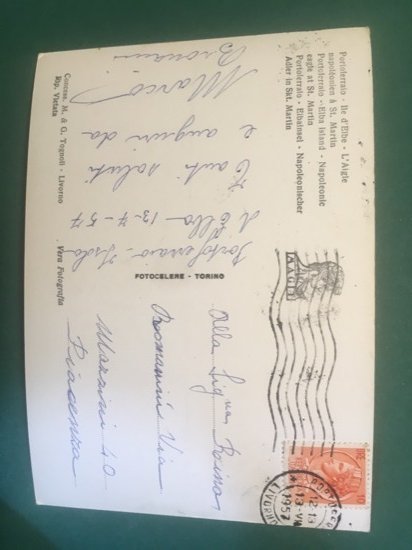 Portoferraio - Ile d'Elbe - L'Aigle
napoléonien à St. Martin
Portoferraio - Elba Island - Napoleonic
eagle at St. Martin
Portoferraio - Elbainsel - Napoleonischer
Adler in Skt. Martin
Portoferraio - Isola
d'Elba 13-7-57
Tanti saluti
e auguri da
Marco
Concess. M. & G. Tognoli - Livorno
Rip. Vietata
Vera Fotografia
FOTOCELERE - TORINO
Alla Sig.na
Via
Mazzini 40
Piacenza
1957